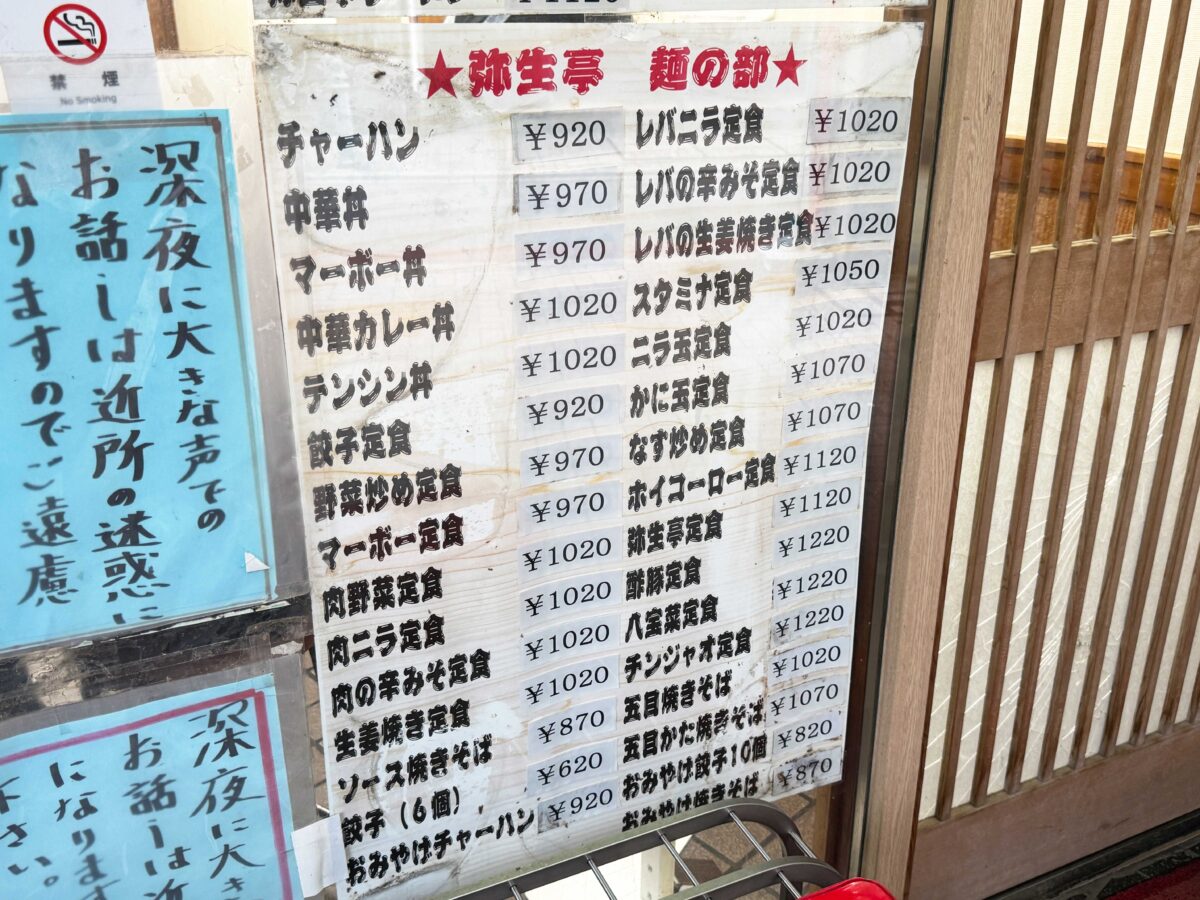 禁煙
No Smoking
深夜に大きな声での
お話しは近所の迷惑に
なりますのでご遠慮
深夜に大き
お話しは近
になります
下さい。
★弥生亭 麺の部★
チャーハン ¥920
中華丼 ¥970
マーボー丼 ¥970
中華カレー丼 ¥1020
テンシン丼 ¥1020
餃子定食 ¥920
野菜炒め定食 ¥970
マーボー定食 ¥970
肉野菜定食 ¥1020
肉ニラ定食 ¥1020
肉の辛みそ定食 ¥1020
生姜焼き定食 ¥1020
ソース焼きそば ¥870
餃子（6個） ¥620
おみやげチャーハン ¥920
レバニラ定食 ¥1020
レバの辛みそ定食 ¥1020
レバの生姜焼き定食 ¥1020
スタミナ定食 ¥1050
ニラ玉定食 ¥1020
かに玉定食 ¥1070
なす炒め定食 ¥1070
ホイコーロー定食 ¥1120
弥生亭定食 ¥1120
酢豚定食 ¥1220
八宝菜定食 ¥1220
チンジャオ定食 ¥1220
五目焼きそば ¥1020
五目かた焼きそば ¥1070
おみやげ餃子10個 ¥820
おみやげ焼きそば ¥870